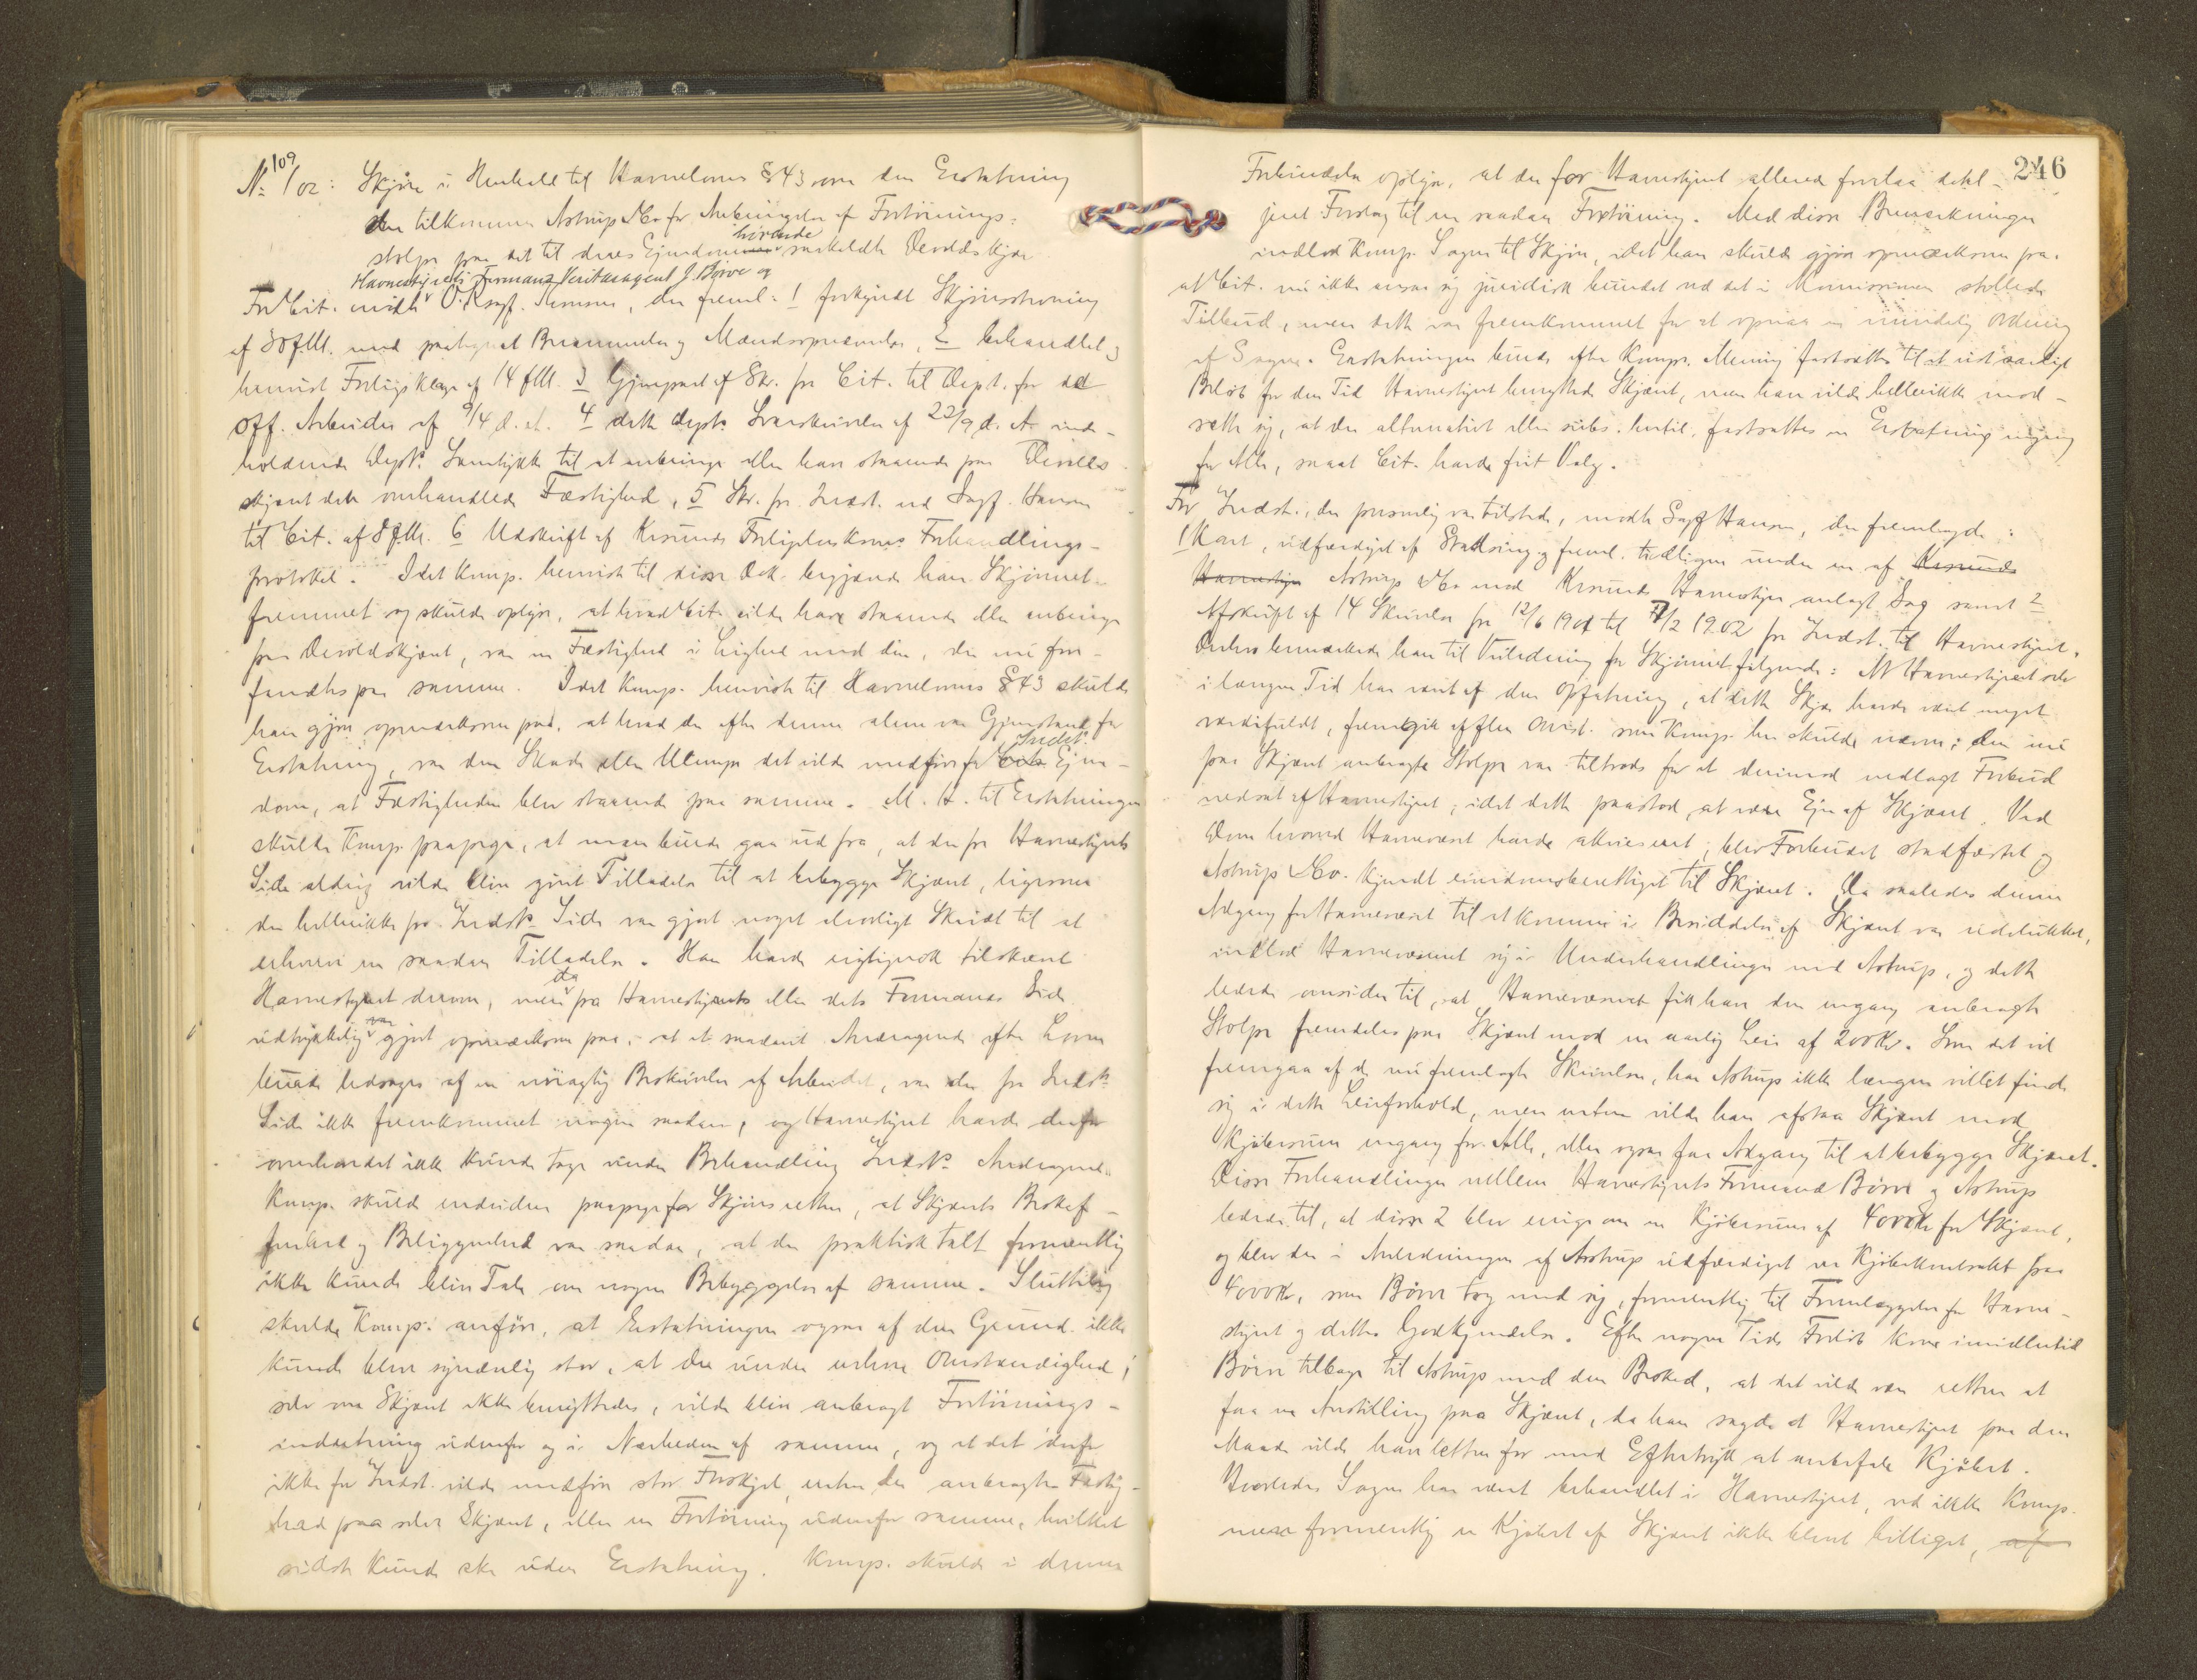 No 109/02: Skjøn i Henhold til Havnelovens § 43 om den Erstatning
der tilkommer Astrup & Co for Anbringelse af Fortøinings-
stolpe paa det til deres Eiendomme hørende saakaldte Devoldskjær
Havnestyrets Formand Veritasagent J. Børve og
For Cit. mødte O.R.sagf. , der freml. 1 forkyndt Skjønsstevning
af d. M. med paategnet Berammelse og Mandsopnævnelse, 2 behandlet og
henvist Forligsklage af 14 f.M. 3 Gjenpart af Skr. fra Cit. til Dept. for de
off. Arbeider af 9/4 d. A. 4 dette Depts Svarskrivelse af 22/9 d. A. inde-
holdende Depts Samtykke til at anbringe eller have staaende paa Devolds-
skjæret dets omhandlede Fæstighed, 5 Skr. fra Indst. ved Sagf. Hansen
til Cit. af 8 f.M. 6 Udskrift af Krsunds Forligelseskoms Forhandlings-
protokol. Idet Komp. henviste til disse Dok. begjærede han Skjønnet
fremmet og skulde oplyse, at hvad Cit. vilde have staaende eller anbringe
paa Devoldskjæret, var en Fæstighed i Lighed med den, der nu fore-
fandtes paa samme. Idet Komp. henviste til Havnelovens § 43 skulde
han gjøre opmærksom paa, at hvad der efter denne alene var Gjenstand for
Erstatning, var den Skade eller Ulempe det vilde medføre for Indst. Cits Eien-
dom, at Fæstigheden blev staaende paa samme. M. H. t. til Erstatningen
skulde Komp. paapege, at man burde gaa ud fra, at der fra Havnestyrets
Side aldrig vilde blive givet Tilladelse til at bebygge Skjæret, ligesom
der hellerikke fra Indsts Side var gjort noget alvorligt Skridt til at
erhverve en saadan Tilladelse. Han havde rigtignok tilskrevet
Havnestyret derom, men da fra Havnestyrets eller dets Formands Side
udtrykkelig var gjort opmærksom paa, at et saadant Andragende efter Loven
burde ledsages af en nøiagtig Beskrivelse af Arbeidet, var der fra Indsts
Side ikke fremkommet nogen saadan, og Havnestyret havde derfor
overhovedet ikke kunde tage under Behandling Indsts Andragende.
Komp. skulde endvidere paapege for Skjønsretten, at Skjærets Beskaf-
fenhed og Beliggenhed var saadan, at der praktisk talt formentlig
ikke kunde blive Tale om nogen Bebyggelse af samme. Sluttelig
skulde Komp. anføre, at Erstatningen ogsaa af den Grund ikke
kunde blive synderlig stor, at der under enhver Omstændighed,
selv om Skjæret ikke benyttedes, vilde blive anbragt Fortøinings-
indretning udenfor og i Nærheden af samme, og at det derfor
ikke for Indst. vilde medføre stor Forskjel, enten der anbragtes Fæstig-
hed paa selve Skjæret, eller en Fortøining udenfor samme, hvilket
sidste kunde ske uden Erstatning. Komp. skulde i denne
246
Forbindelse oplyse, at der for Havnestyret allerede forelaa detal-
jeret Forslag til en saadan Fortøining. Med disse Bemærkninger
indlod Komp. Sagen til Skjøn, idet han skulde gjøre opmærksom paa.
at Cit. nu ikke ansaa sig juridisk bundet ved det i Kommissionen stillede
Tilbud, men dette var fremkommet for at opnaa en mindelig Ordning
af Sagen. Erstatningen burde efter Komps. Mening fastsættes til et vist aarligt
Beløb for den Tid Havnestyret benyttede Skjæret, men han vilde hellerikke mod-
sætte sig, at der alternativt eller subs. hertil fastsattes en Erstatning engang
for Alle, saaat Cit. havde frit Valg.
For Indst., der personlig var tilstede, mødte Sagf Hansen, der fremlagde:
1 Kart, udfærdiget af Stadsing. og freml. tidligere under en af Krsunds
Havnestyre Astrup & Co mod Krsunds Havnestyre anlagt Sag samt 2
Afskrift af 14 Skrivelser fra 12/6 1901 til 7/2 1902 fra Indst. til Havnestyret.
Derhos bemærkede han til Veiledning for Skjønnet følgende: At Havnestyret selv
i længere Tid har været af den Opfatning, at dette Skjær havde været meget
værdifuldt, fremgik af flere Omst. som Komp. her skulde nævne: Den nu
paa Skjæret anbragte Stolpe var tiltrods for et derimod nedlagt Forbud
nedsat af Havnestyret, idet dette paastod at være Eier af Skjæret. Ved
Dom hvorved Havnevæsenet havde akviesceret, blev Forbudet stadfæstet og
Astrup & Co. kjendt eiendomsberettiget til Skjæret. Da saaledes denne
Adgang for Havnevæsenet til at komme i Besiddelse af Skjæret var udelukket,
indlod Havnevæsenet sig i Underhandlinger med Astrup, og dette
ledede omsider til, at Havnevæsenet fik have den engang anbragte
Stolpe fremdeles paa Skjæret mod en aarlig Leie af 200 Kr. Som det vil
fremgaa af de nu fremlagte Skrivelser, har Astrup ikke længere villet finde
sig i dette Leieforhold, men enten vilde han afstaa Skjæret mod
Kjøbesum engang for Alle, eller ogsaa faa Adgang til at bebygge Skjæret.
Disse Forhandlinger mellem Havnestyrets Formand Børve og Astrup
ledede til, at disse 2 blev enige om en Kjøbesum af 4000 Kr for Skjæret,
og blev der i Anledningen af Astrup udfærdiget en Kjøbekontrakt paa
4000 Kr, som Børve tog med sig, formentlig til Fremlæggelse for Havne-
styret og dettes Godkjendelse. Efter nogen Tids Forløb kom imidlertid
Børve tilbage til Astrup med den Besked, at det vilde være rettere at
faa en Anstilling paa Skjæret, da han sagde at Havnestyret paa den
Maade vilde have lettere for med Eftertryk at anbefale Kjøbet.
Hvorledes Sagen har været behandlet i Havnestyret, ved ikke Komp.
men formentlig er Kjøbet af Skjæret ikke blevet billiget, af